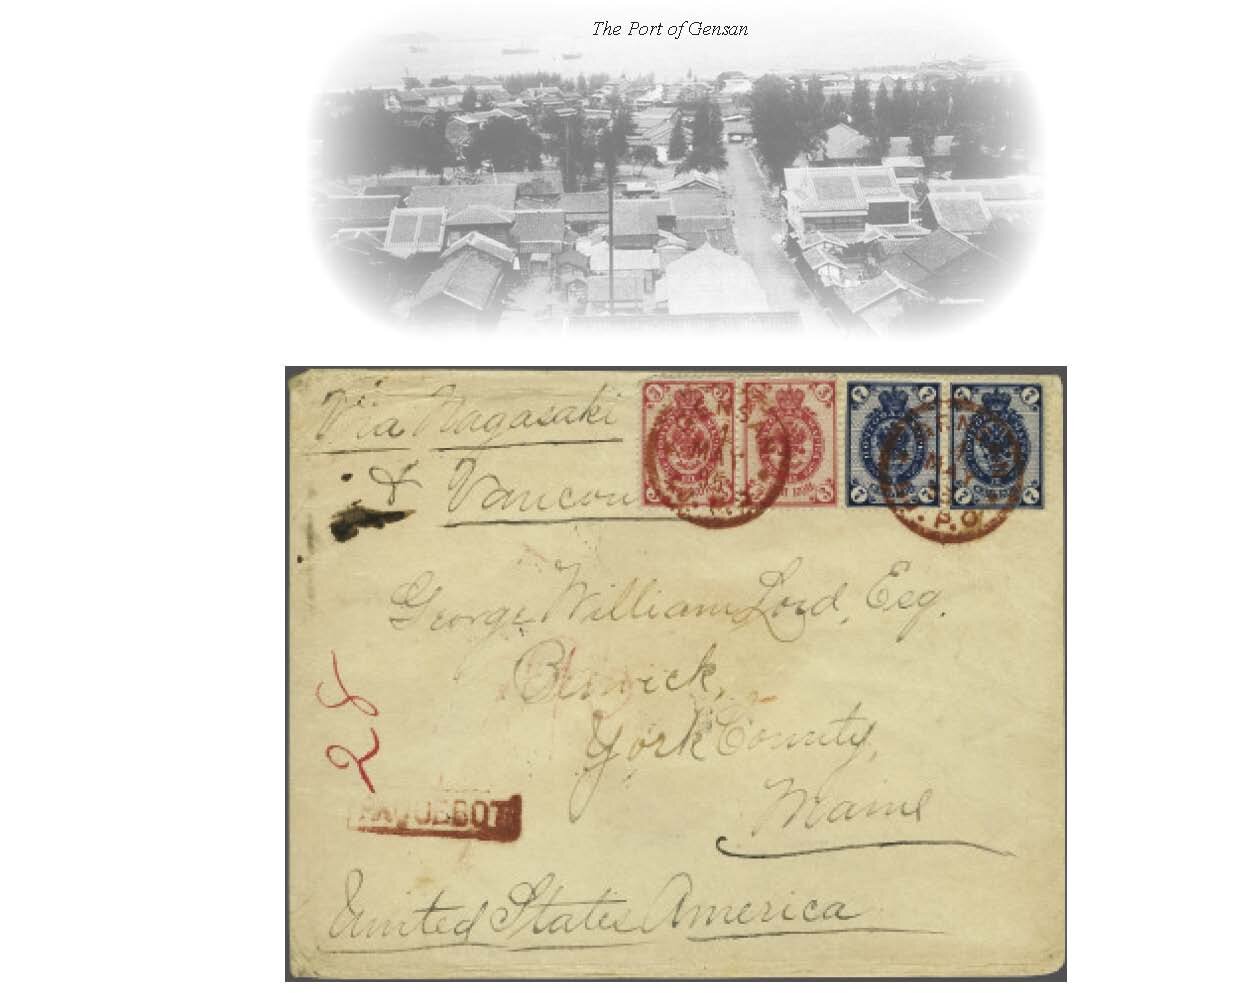 The Port of Gensan
Via Nagasaki
& Vancou
3 3 3 7 7 7 7
George William Lord, Esq.
Berwick,
York County,
Maine
28
PAQUEBOT
United States America